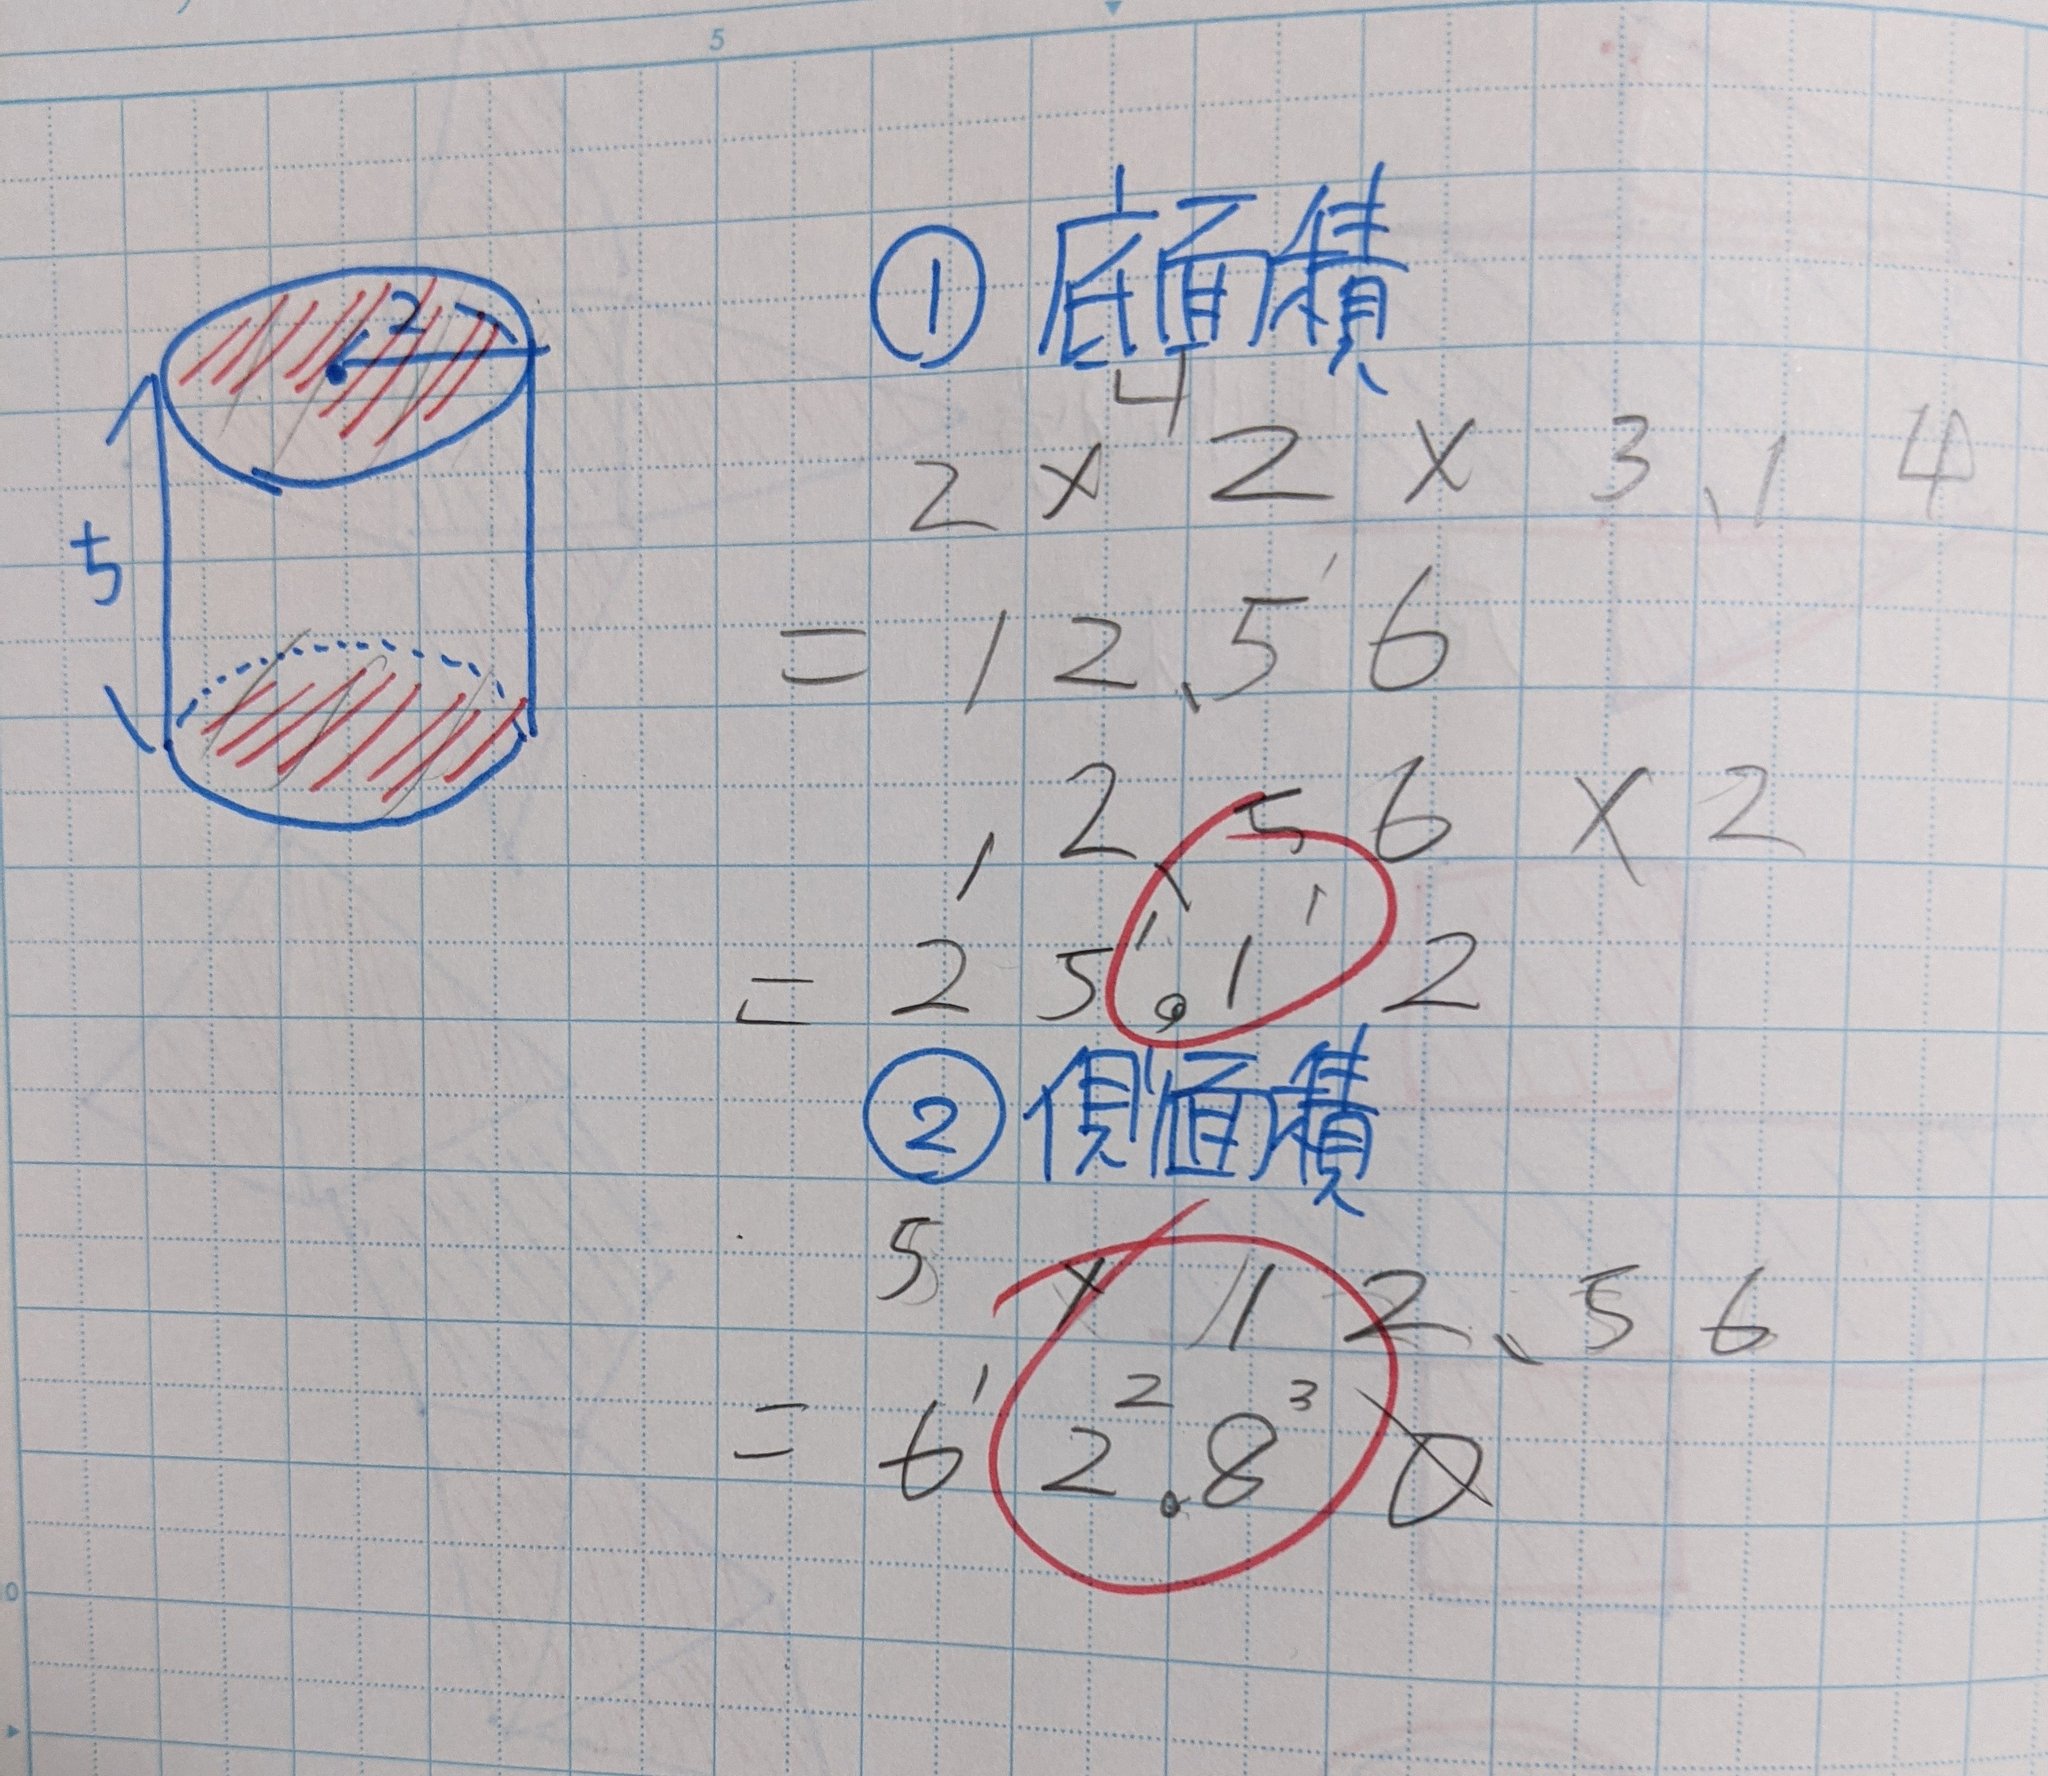 5
2
5
① 底面積
4
2 × 2 × 3.14
= 12.56
12.56 × 2
= 25.12
② 側面積
5 × 12.56
= 62.80
0